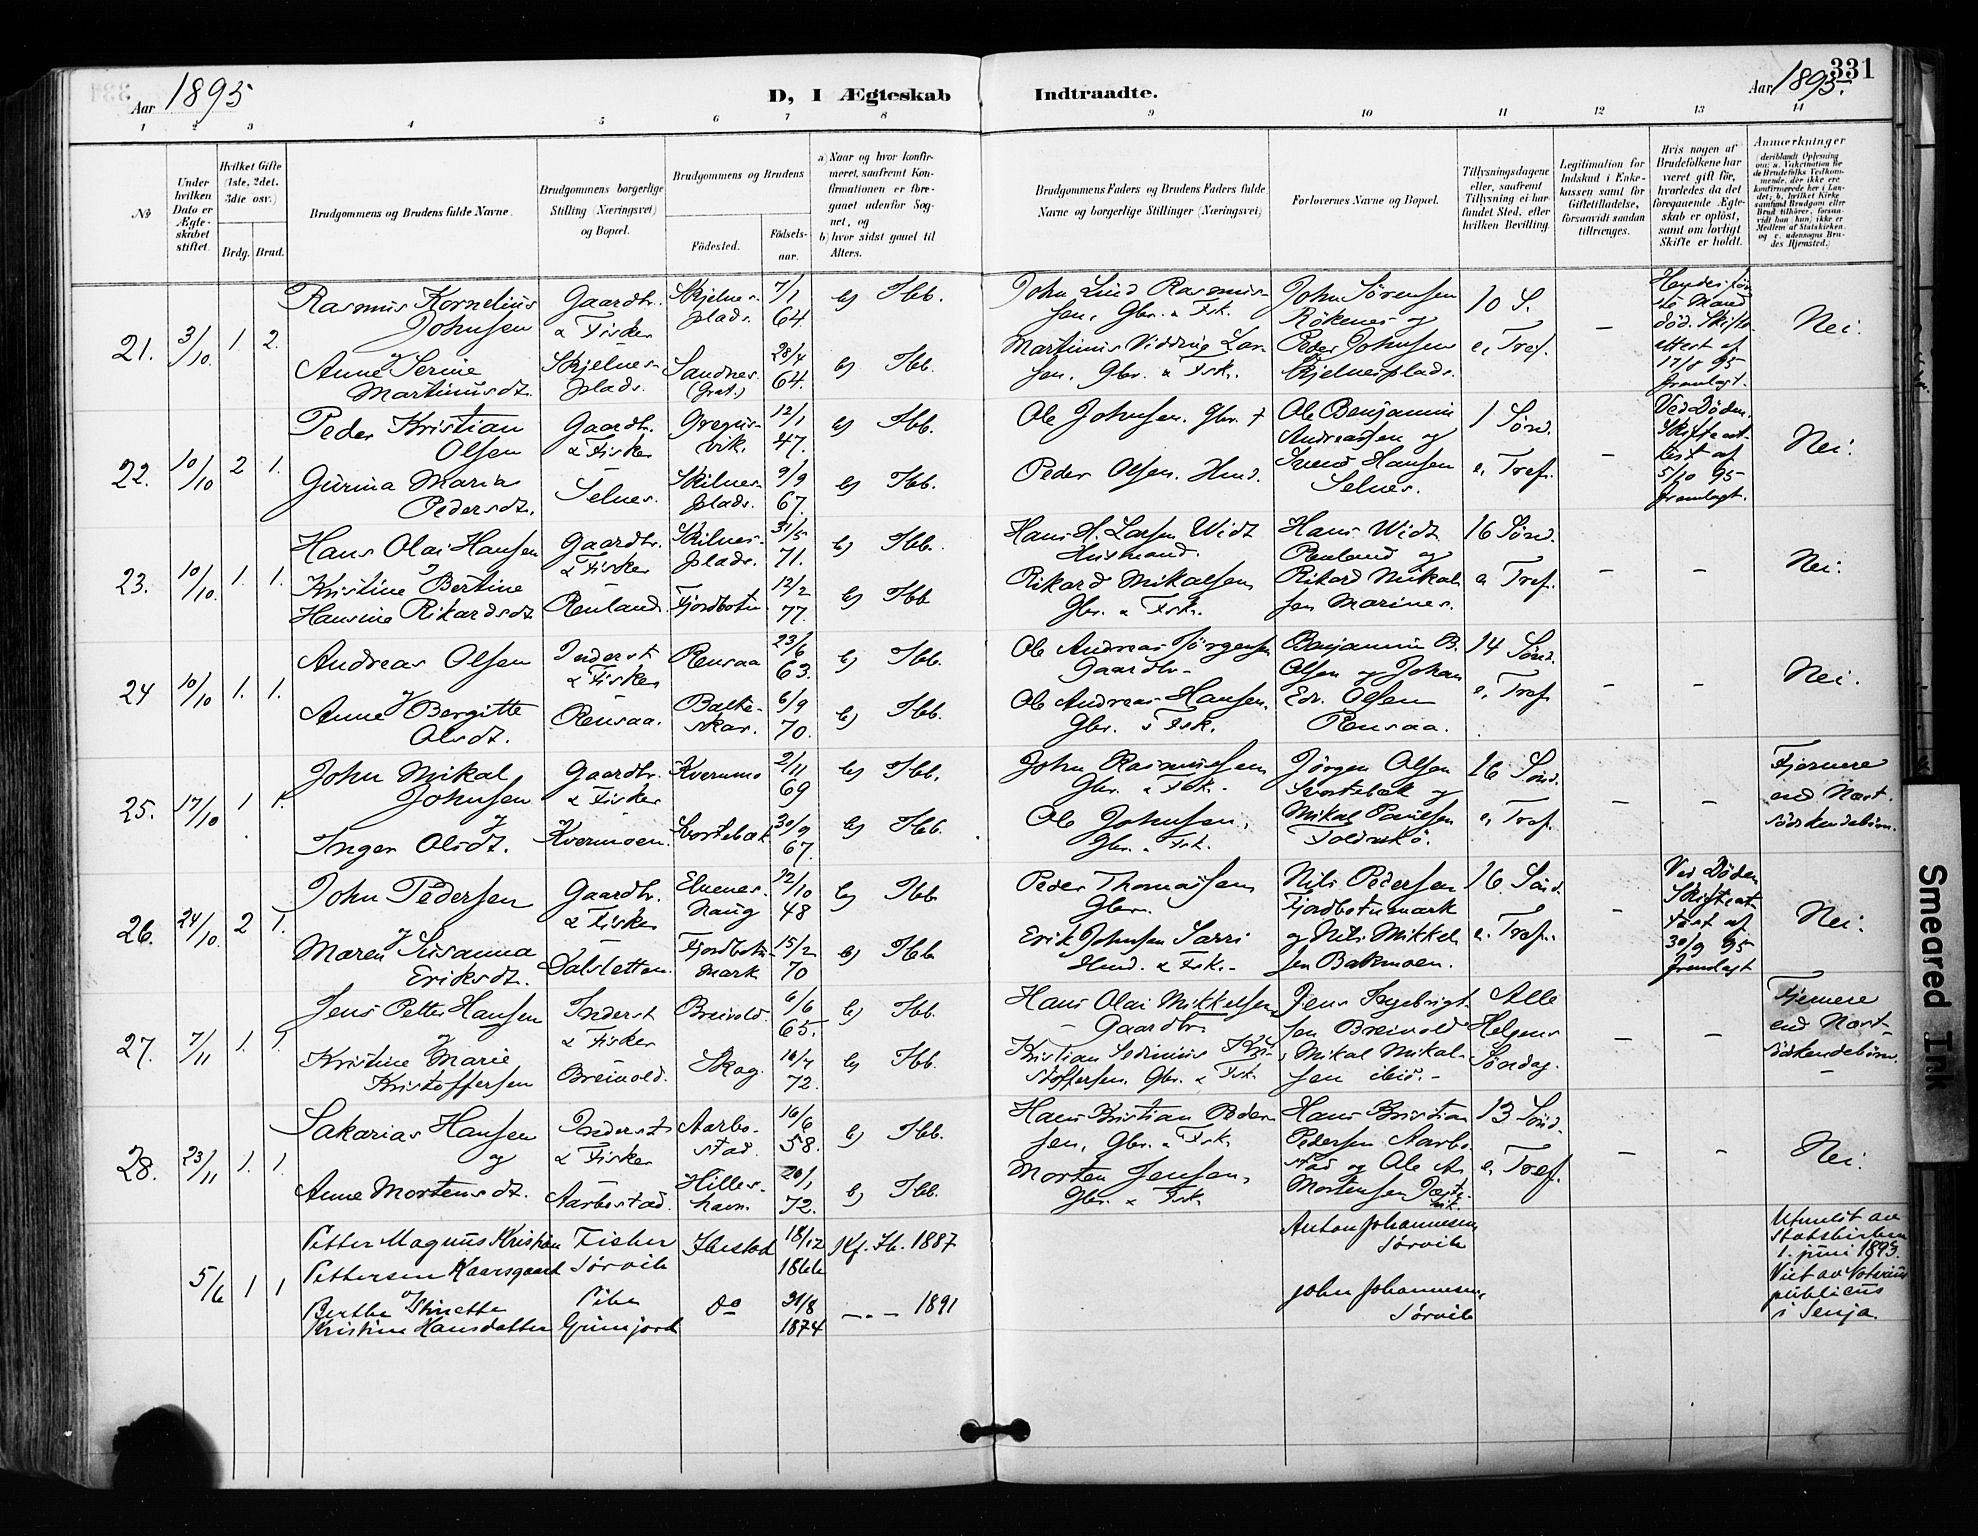 331
Aar 1895
D, I Ægteskab Indtraadte.
Aar 1895.
1 2 3 4 5 6 7 8 9 10 11 12 13 14
№
Under hvilken Dato er Ægteskabet stiftet.
Hvilket Gifte (1ste, 2det, 3die osv.)
Brdg. Brud.
Brudgommens og Brudens fulde Navne.
Brudgommens borgerlige Stilling (Næringsvei) og Bopæl.
Brudgommens og Brudens
Fødested. Fødselsaar.
a) Naar og hvor konfirmeret, saafremt Konfirmationen er foregaaet udenfor Sognet, og
b) hvor sidst gaaet til Alters.
Brudgommens Faders og Brudens Faders fulde Navne og borgerlige Stillinger (Næringsvei)
Forlovernes Navne og Bopæl.
Tillysningsdagene eller, saafremt Tillysning ei har fundet Sted, efter hvilken Bevilling.
Legitimation for Indskud i Enkekassen samt for Giftetilladelse, forsaavidt saadan tiltrænges.
Hvis nogen af Brudefolkene har været gift før, hvorledes da det foregaaende Ægteskab er opløst, samt om lovligt Skifte er holdt.
Anmerkninger
(deriblandt Oplysning om: a. Vakcination for de Brudefolks Vedkommende, der ikke ere konfirmerede her i Landet; b. hvilket Kirkesamfund Brudgom eller Brud tilhører, forsaavidt han (hun) ikke er Medlem af Statskirken, og c. udensogns Brudes Hjemsted.)
21. 3/10. 1. 2.
Rasmus Kornelius Johnsen
og
Anne Serine Martinusdt.
Gaardbr. & Fisker
Skjelnesplads.
Skjelnesplads. 7/1 64.
Sandnes. (Grat.) 28/4 64.
b) Ibb.
b) Ibb.
John Lind Rasmussen, Gbr. & Fsk.
Martinus Vidding Larsen. Gbr. & Fsk.
John Sørensen Rökenes og
Peder Johnsen Skjelnesplads.
10 S. e. Tref.
–
Hendes første Mand død. Skifteattest af 17/8 95 fremlagt.
Nei.
22. 10/10 2 1.
Peder Kristian Olsen
Gurina Maria Pedersdt.
Gaardbr. & Fisker
Selnes.
Gregusvik. 12/1 47.
Skilnesplads. 9/9 67.
b) Ibb.
b) Ibb.
Ole Johnsen. Gbr. +
Peder Olsen. Hmd.
Ole Benjamin Andreassen og
Svend Hansen Selnes.
1 Sønd. e. Tref.
–
Ved Döden. Skifteattest af 5/10 95 fremlagt.
Nei.
23. 10/10. 1. 1.
Hans Olai Hansen
og
Kristine Bertine Hansine Rikardsdt.
Gaardbr. & Fisker
Renland.
Skilnesplads. 31/5 71.
Fjordbotn 12/2 77.
b) Ibb.
b) Ibb
Hans A. Larsen Widt Husmand.
Rikard Mikalsen Gbr. & Fsk.
Hans Widt Renland og
Rikard Mikalsen Marines.
16 Sønd. e. Tref.
–
–
Nei.
24 10/10 1. 1.
Andreas Olsen
og
Anne Bergitte Olsdt.
Inderst & Fisker
Rensaa.
Rensaa 23/6 63.
Balteskar. 6/9 70.
b) Ibb.
b) Ibb.
Ole Andreas Jörgensen Gaardbr.
Ole Andreas Hansen. Gbr. & Fsk.
Benjamin B. Olsen og Johan Edv. Olsen Rensaa.
14 Sønd. e. Tref.
–
–
Nei.
25. 17/10 1 1.
John Mikal Johnsen
og
Inger Olsdt.
Gaardbr. & Fisker
Kvernmoen.
Kvernmo 2/11 69
Svortebæk 30/9 67.
b) Ibb.
b) Ibb.
John Rasmussen Gbr. & Fsk.
Ole Johnsen, Gbr. & Fsk.
Jörgen Olsen Svortebæk og
Mikal Paulsen
16 Sønd. e. Tref.
–
–
Fjernere end Næstsödskendebörn.
26. 24/10. 2 1.
John Pedersen
og
Maren Susanna Eriksdt.
Gaardbr. & Fisker
Dalsletten.
Elvenes 12/10 48
Fjordbotnmark 15/2 70
b) Ibb
b) Ibb
Peder Thomassen Gbr.
Erik Johnsen Sarri Hmd. & Fsk.
Nils Pedersen Fjordbotnmark
og Nils Mikkelsen Bakmoen.
16. Sønd. e. Tref.
–
Ved Döden Skifteattest af 30/9 95 fremlagt
Nei.
27. 7/11 1. 1.
Jens Petter Hansen
og
Kristine Marie Kristoffersen
Inderst & Fisker
Breivold.
Breivold. 6/6 65.
Skog. 16/7 72.
b) Ibb.
b) Ibb.
Hans Olai Mikkelsen Gaardbr.
Kristian Sedinius Kristoffersen. Gbr. & Fsk.
Jens Ingebrigtsen Breivold
& Mikal Mikalsen ibid.
Alle Helgens Söndag.
–
–
Fjernere end Næstsödskendebörn.
28. 23/11 1. 1.
Sakarias Hansen
og
Anne Mortensdt.
Inderst & Fisker
Aarbostad.
Aarbostad. 16/6 58.
Hilleshavn. 20/1 72.
b) Ibb.
b) Ibb.
Hans Kristian Pedersen, Gbr. & Fsk.
Morten Jensen, Gbr. & Fsk.
Hans Kristian Pedersen Aarbostad og Ole A. Mortensen
13 Sønd. e. Tref.
–
–
Nei.
5/6 1 1
Petter Magnus Kristian Pettersen Kaarsgaard
og
Berthe Stinette Kristine Hansdatter
Fisker Sørvik
Pike Grimjord
Ibestad 18/12 1866
do 21/8 1874
Kf. Ib. 1887
–"– 1891
Anton Johannesen Sørvik
John Johannesen, Sørvik
Utmeldt av Statskirken 1. juni 1895. Viet av Notarius publicus i Senja.
Smeared Ink